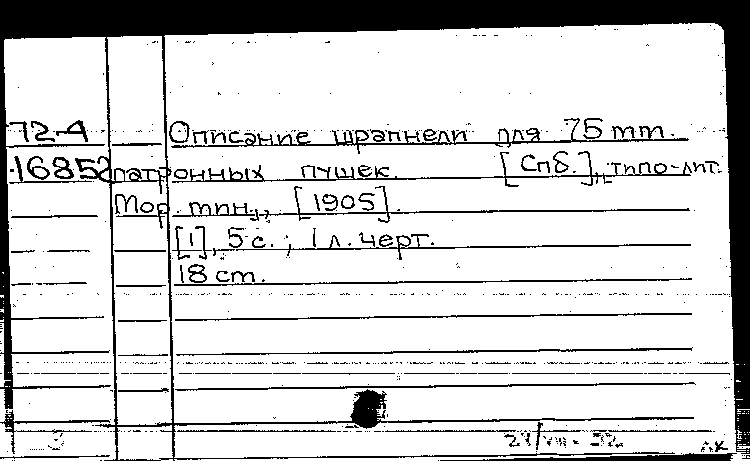 72-4 Описание шрапнели для 75 mm.
16852 патронных пушек. [Спб.], типо-лит.
Мор. мин., [1905].
[1], 5 с.; 1 л. черт.
18 cm.
3